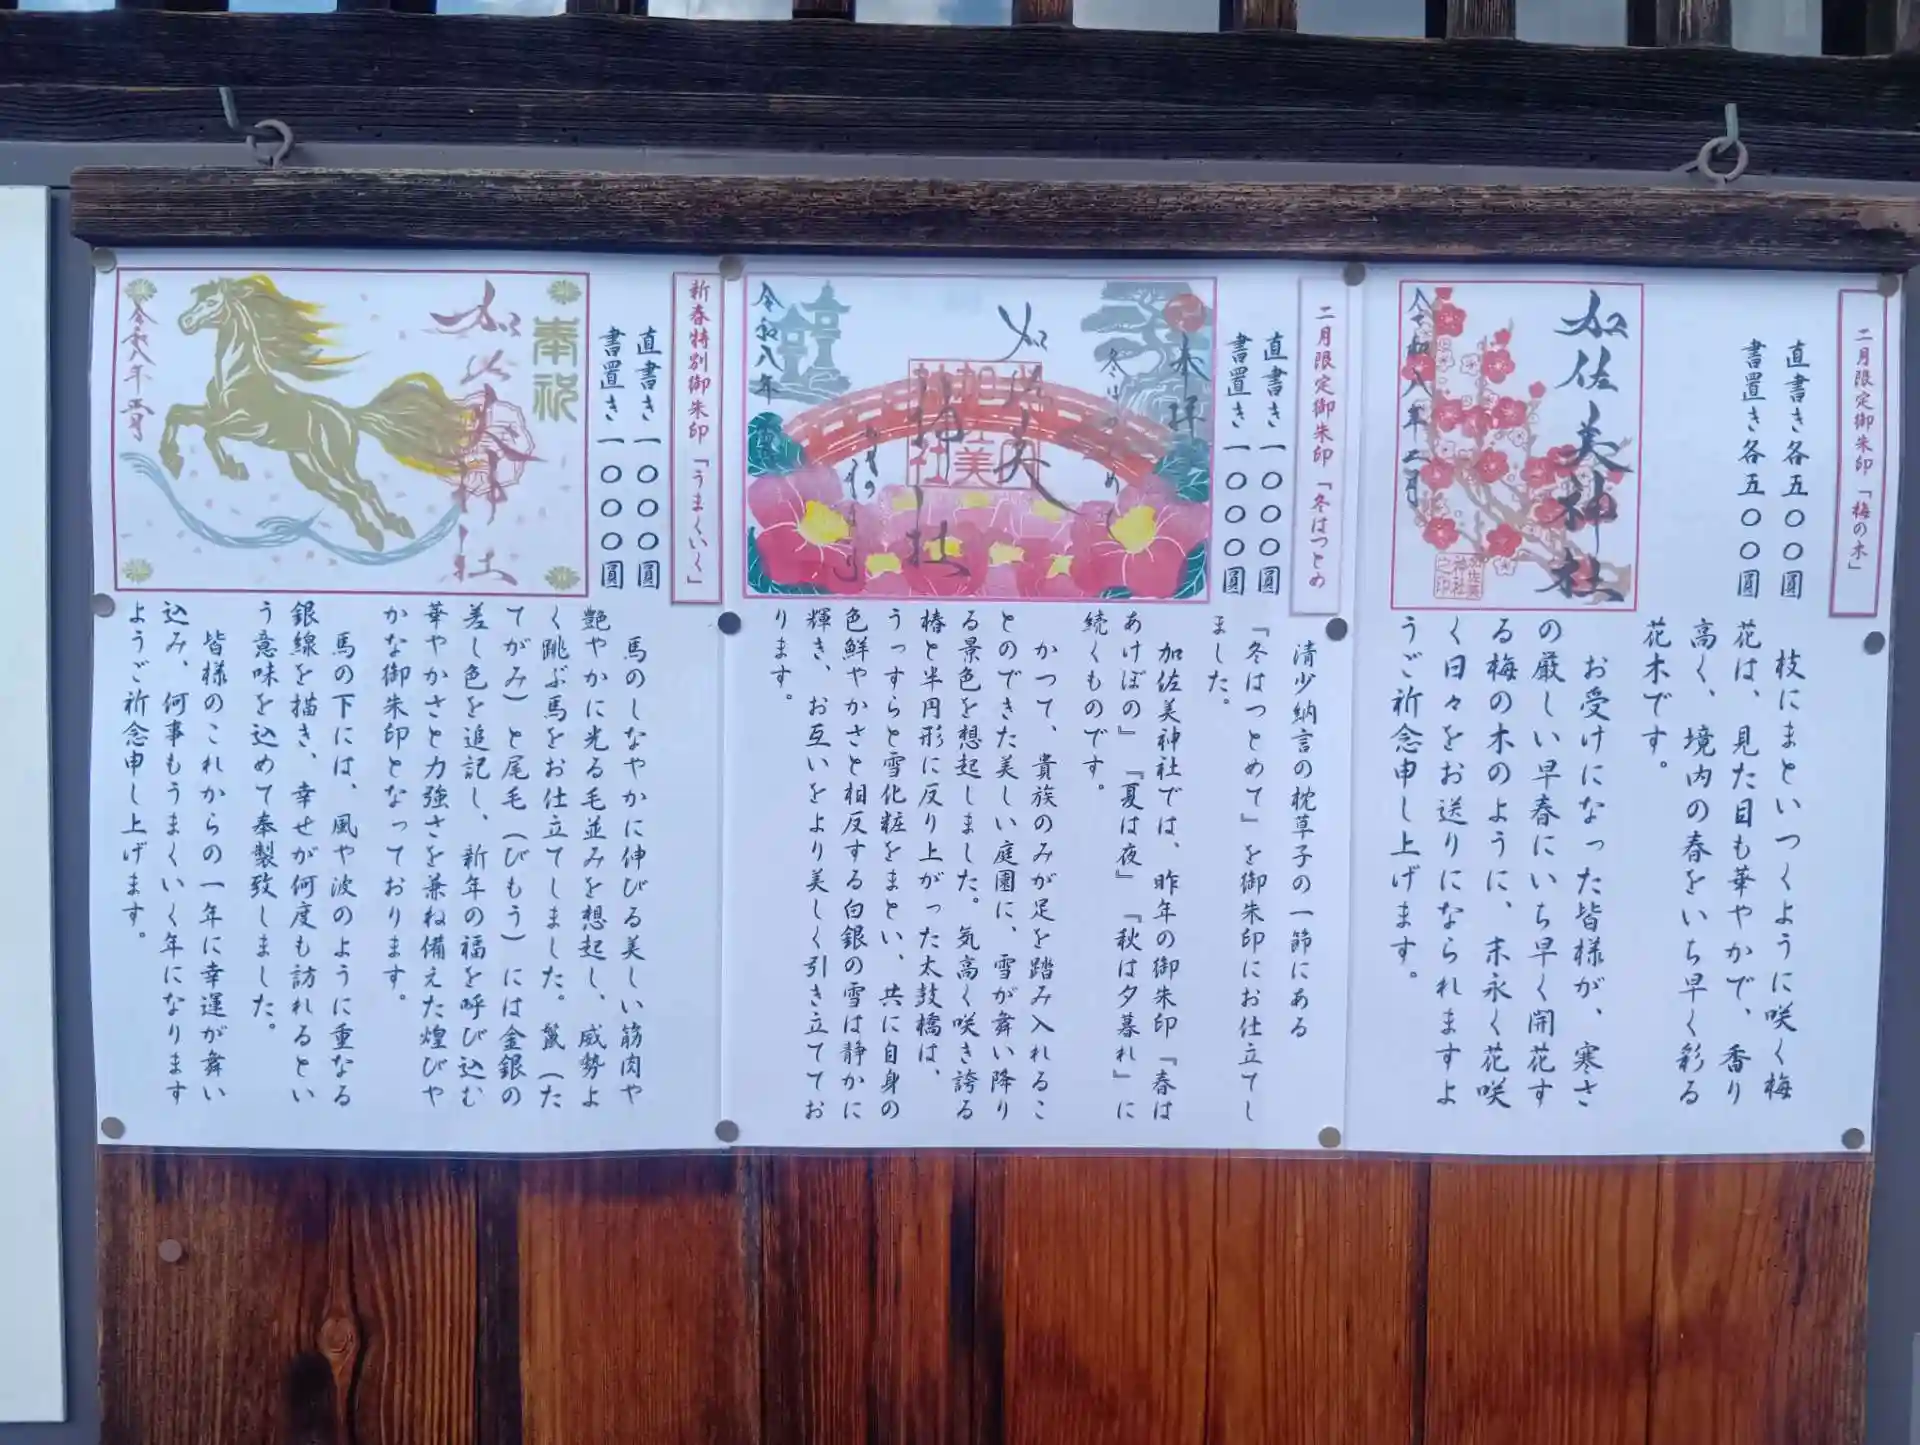 二月限定御朱印「梅の木」
直書き各五〇〇圓
書置き各五〇〇圓
加佐美神社
令和八年二月
加佐美
神社
之印
枝にまといつくように咲く梅
花は、見た目も華やかで、香り
高く、境内の春をいち早く彩る
花木です。
お受けになった皆様が、寒さ
の厳しい早春にいち早く開花す
る梅の木のように、末永く花咲
く日々をお送りになられますよ
うご祈念申し上げます。
二月限定御朱印「冬はつとめ
直書き一〇〇〇圓
書置き一〇〇〇圓
奉拝
冬はつとめて
加佐美
神社
令和八年
清少納言の枕草子の一節にある
「冬はつとめて」を御朱印にお仕立てし
ました。
加佐美神社では、昨年の御朱印「春は
あけぼの」「夏は夜」「秋は夕暮れ」に
続くものです。
かつて、貴族のみが足を踏み入れるこ
とのできた美しい庭園に、雪が舞い降り
る景色を想起しました。気高く咲き誇る
椿と半円形に反り上がった太鼓橋は、
うっすらと雪化粧をまとい、共に自身の
色鮮やかさと相反する白銀の雪は静かに
輝き、お互いをより美しく引き立ててお
ります。
新春特別御朱印「うまくいく」
直書き一〇〇〇圓
書置き一〇〇〇圓
奉祝
加佐美神社
令和八年
馬のしなやかに伸びる美しい筋肉や
艶やかに光る毛並みを想起し、威勢よ
く跳ぶ馬をお仕立てしました。鬣（た
てがみ）と尾毛（びもう）には金銀の
差し色を追記し、新年の福を呼び込む
華やかさと力強さを兼ね備えた煌びや
かな御朱印となっております。
馬の下には、風や波のように重なる
銀線を描き、幸せが何度も訪れるとい
う意味を込めて奉製致しました。
皆様のこれからの一年に幸運が舞い
込み、何事もうまくいく年になります
ようご祈念申し上げます。